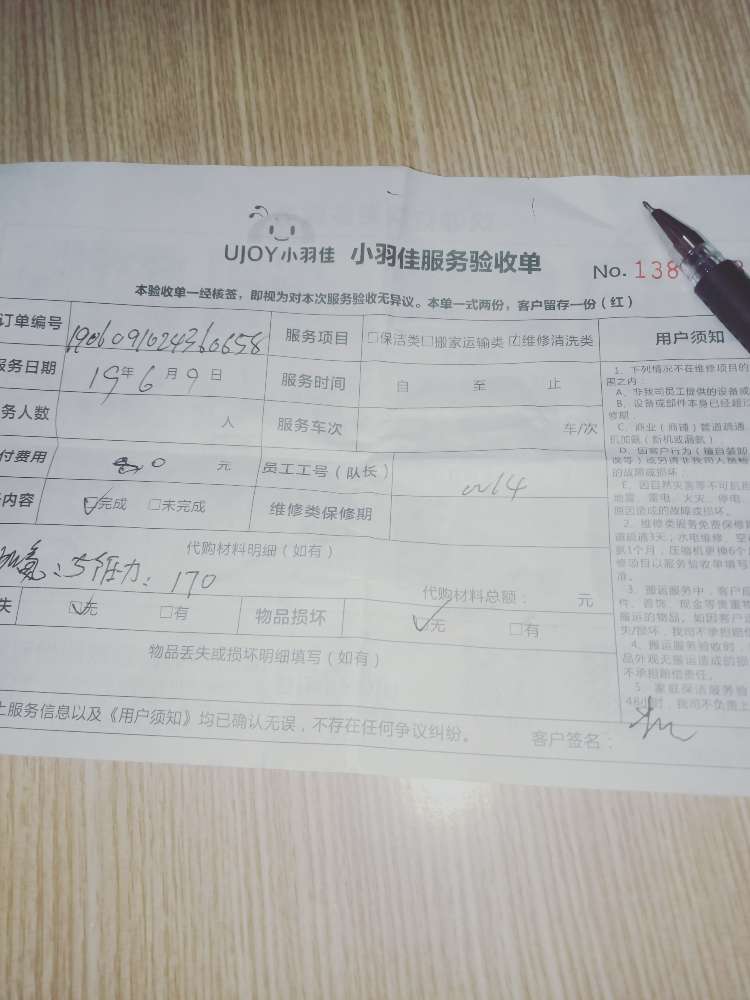 UJOY小羽佳 小羽佳服务验收单 No. 138
本验收单一经核签，即视为对本次服务验收无异议。本单一式两份，客户留存一份（红）
订单编号 1906091024360658 服务项目 □保洁类□搬家运输类☑维修清洗类 用户须知
服务日期 19年6月9日 服务时间 自 至 止
务人数 人 服务车次 车/次
付费用 0 元 员工工号（队长）
内容 ☑完成 □未完成 维修类保修期
代购材料明细（如有）
170
代购材料总额： 元
失 ☑无 □有 物品损坏 ☑无 □有
物品丢失或损坏明细填写（如有）
上服务信息以及《用户须知》均已确认无误，不存在任何争议纠纷。 客户签名：
1、下列情况不在维修项目的
围之内
A、非我司员工提供的设备或
B、设备或部件本身已经超过
修期
C、商业（商铺）管道疏通
机加氟（新机或漏氟）
D、因客户行为（擅自装卸
的故障或损坏；
E、因自然灾害等不可抗拒
地震、雷电、火灾、停电
原因造成的故障或损坏。
2、维修类服务免费保修期
道疏通3天，水电维修、空
氟1个月，压缩机更换6个
修项目以服务验收单填写
准。
3、搬运服务中，客户
件、首饰、现金等贵重物
搬运的物品，如因客户
失/损坏，我司不承担赔偿
4、搬运服务验收时，
品外观无搬运造成的损
不承担赔偿责任。
5、家庭保洁服务验
48小时，我司不负责上